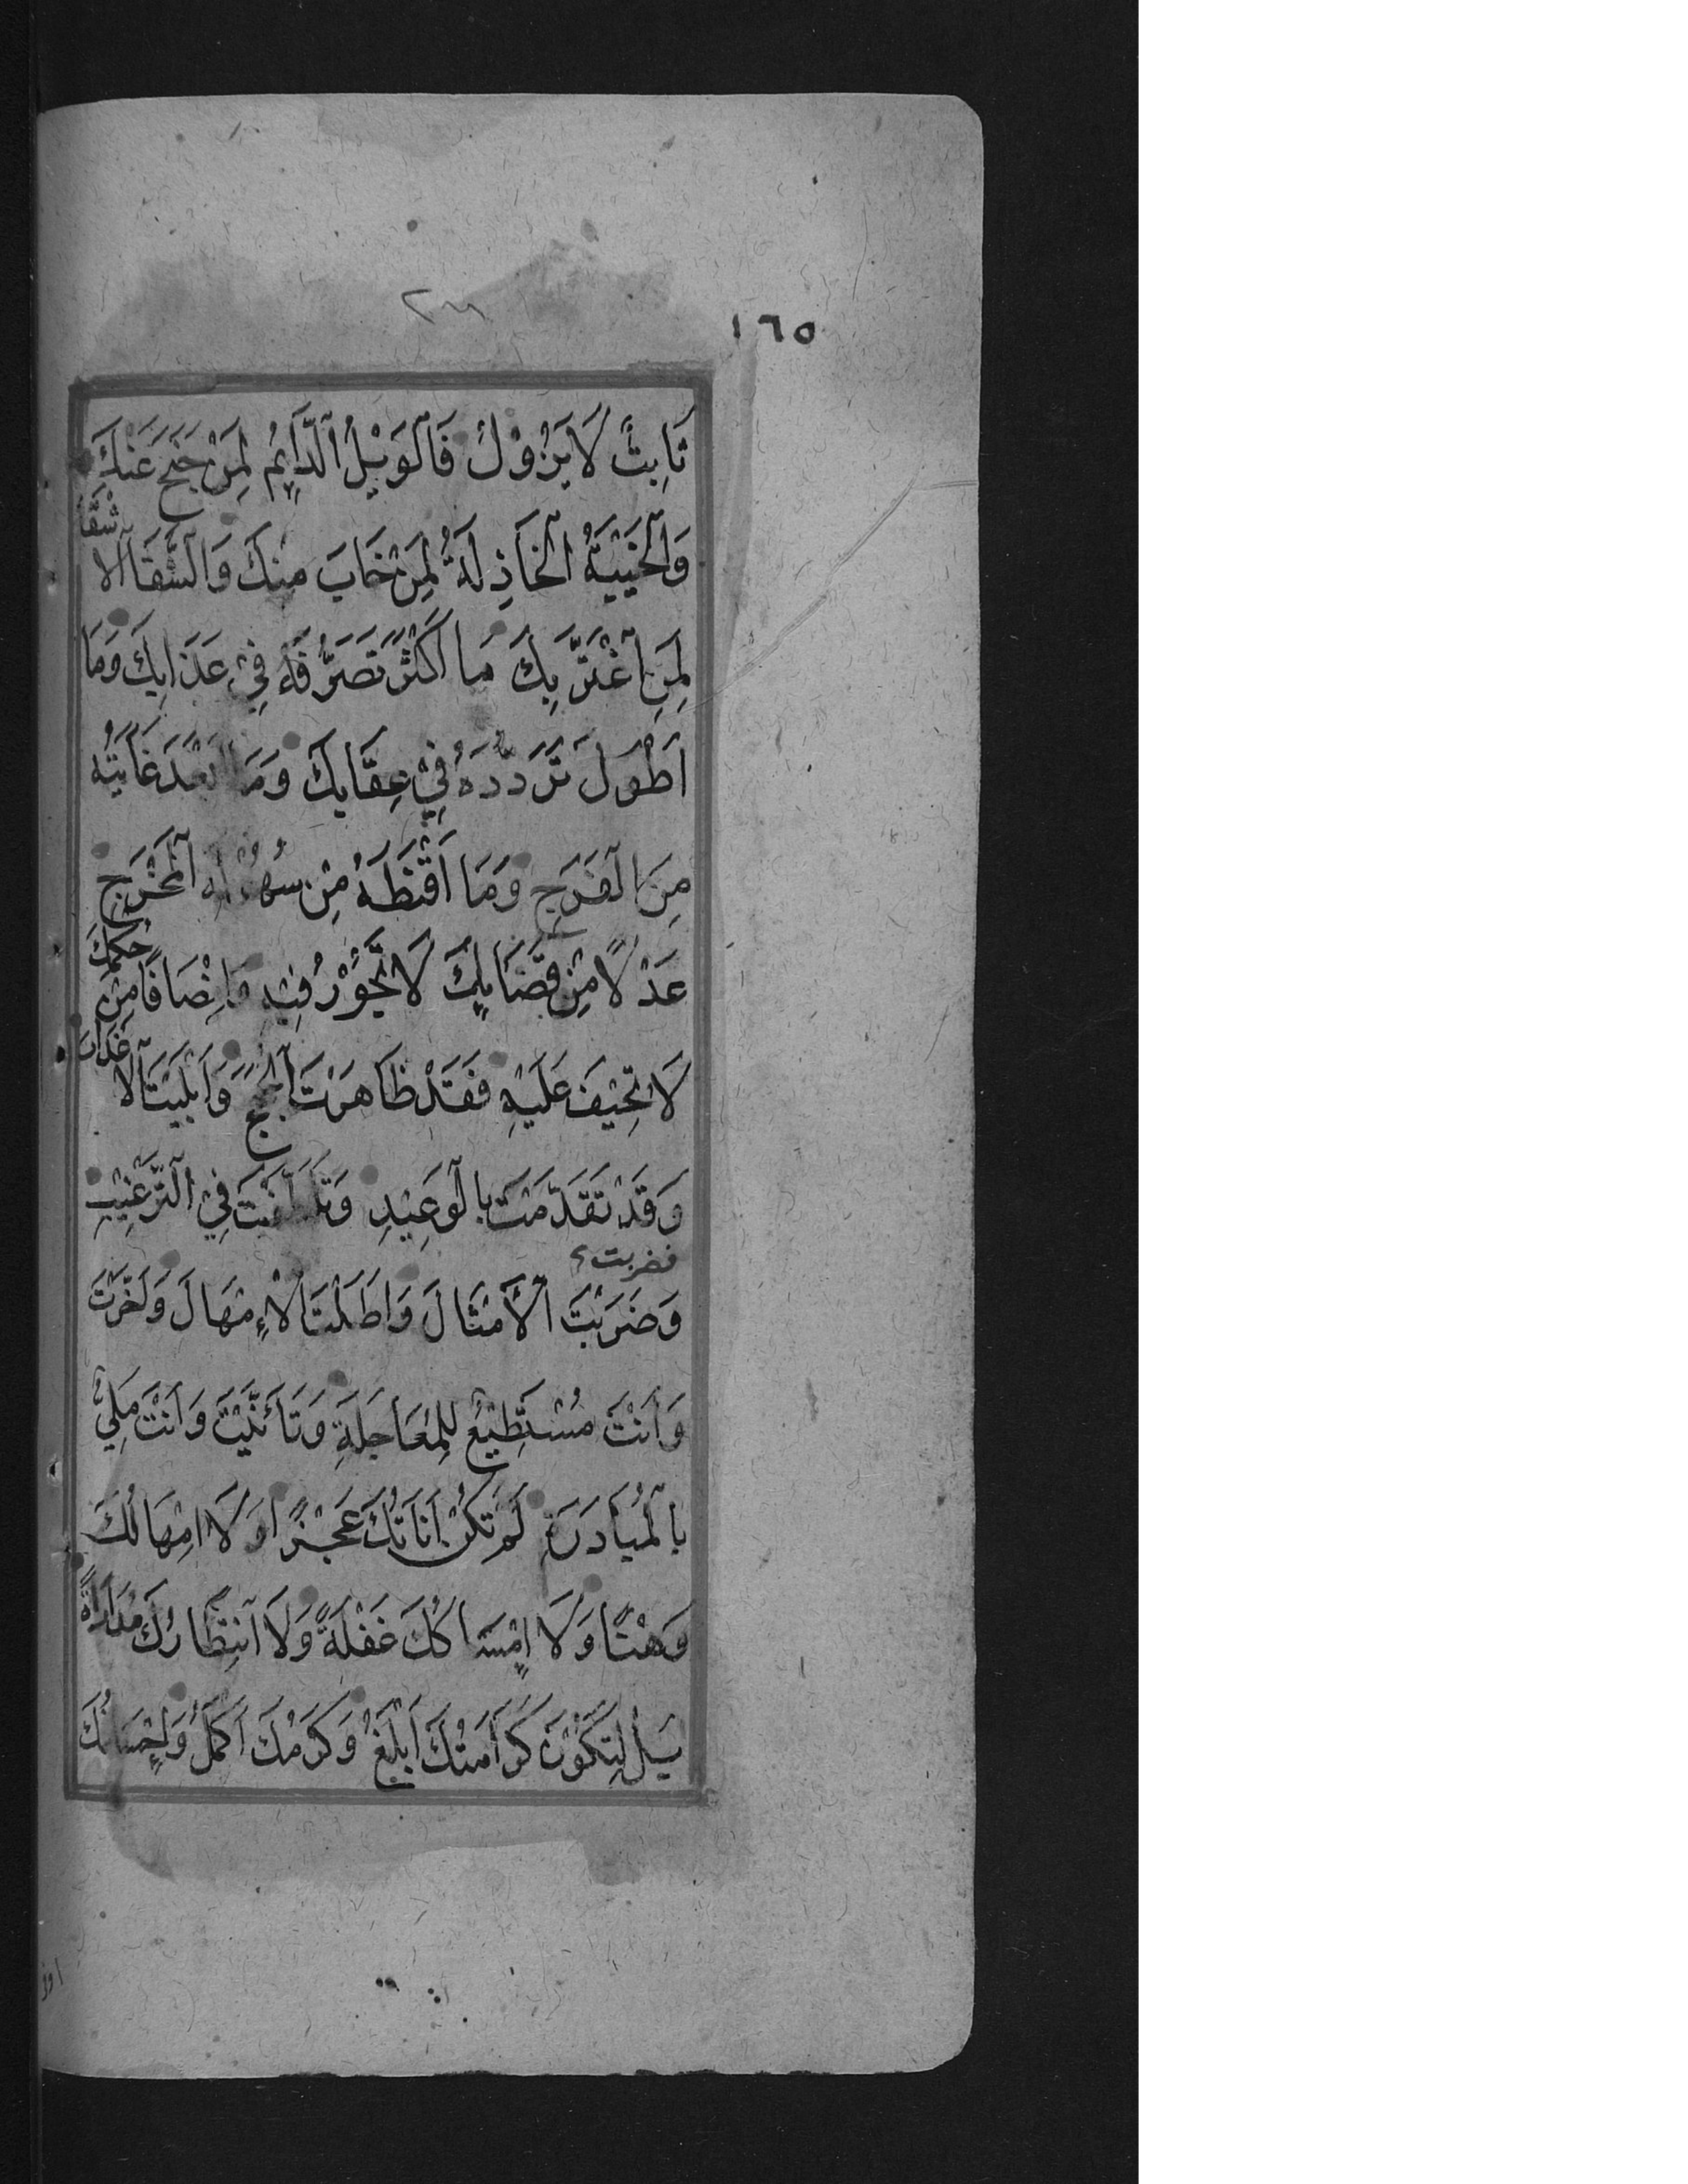 ١٦٥
ثَابِتٌ لَا يَزُوْلُ فَالْوَيْلُ الدَّائِمُ لِمَنْ جَنَحَ عَنْكَ
وَالْخَيْبَةُ الْخَاذِلَةُ لِمَنْ خَابَ مِنْكَ وَالشَّقَاۤءُ الْاَشْقَا
لِمَنِ اغْتَرَّ بِكَ مَا اَكْثَرَ تَصَرُّفَهُ فِيْ عَذَابِكَ وَمَا
اَطْوَلَ تَرَدُّدَهُ فِيْ عِقَابِكَ وَمَا اَبْعَدَ غَايَتَهُ
مِنَ الْفَرَجِ وَمَا اَقْنَطَهُ مِنْ سُهُوْلَةِ الْمَخْرَجِ
عَدْلًا مِنْ قَضَائِكَ لَا تَجُوْرُ فِيْهِ وَاِنْصَافًا مِنْ حُكْمِكَ
لَا تَحِيْفُ عَلَيْهِ فَقَدْ ظَاهَرْتَ الْحُجَجَ وَاَبْلَيْتَ الْاَعْذَارَ
وَقَدْ تَقَدَّمْتَ بِالْوَعِيْدِ وَتَلَطَّفْتَ فِيْ التَّرْغِيْبِ
فضربت
وَضَرَبْتَ الْاَمْثَالَ وَاَطَلْتَ الْاِمْهَالَ وَاَخَّرْتَ
وَاَنْتَ مُسْتَطِيْعٌ لِلْمُعَاجَلَةِ وَتَاَنَّيْتَ وَاَنْتَ مَلِيْءٌ
بِالْمُبَادَرَةِ لَمْ تَكُنْ اَنَاتُكَ عَجْزًا وَلَا اِمْهَالُكَ
وَهْنًا وَلَا اِمْسَاكُكَ غَفْلَةً وَلَا انْتِظَارُكَ مُدَارَاةً
بَلْ لِتَكُوْنَ كَرَامَتُكَ اَبْلَغَ وَكَرَمُكَ اَكْمَلَ وَاِحْسَانُكَ